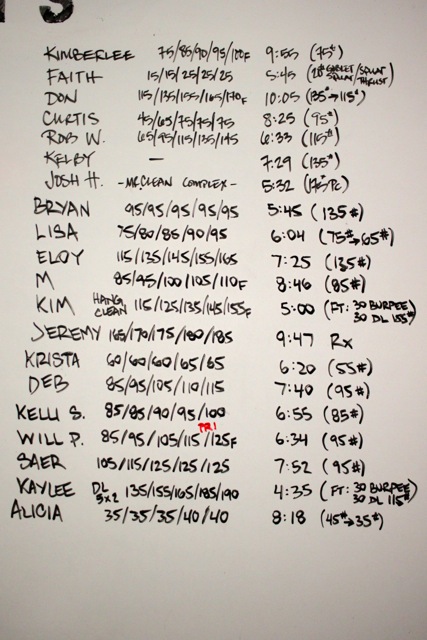 TS
KIMBERLEE 75/85/90/95/100F 9:55 (75#)
FAITH 15/15/25/25/25 5:45 (20# GOBLET SQUAT/SQUAT THRUST)
DON 115/135/155/165/170F 10:05 (135#→115#)
CURTIS 45/65/75/75/75 8:25 (95#)
ROB W. 65/95/115/135/145 6:33 (115#)
KELBY — 7:29 (135#)
JOSH H. -MCCLEAN COMPLEX- 5:32 (175# PC)
BRYAN 95/95/95/95/95 5:45 (135#)
LISA 75/80/85/90/95 6:04 (75#→65#)
ELOY 115/135/145/155/165 7:25 (135#)
M 85/95/100/105/110F 8:46 (85#)
KIM HANG CLEAN 115/125/135/145/155F 5:00 (FT: 30 BURPEE 30 DL 155#)
JEREMY 165/170/175/180/185 9:47 Rx
KRISTA 60/60/60/65/65 6:20 (55#)
DEB 85/95/105/110/115 7:40 (95#)
KELLI S. 85/85/90/95/100 6:55 (85#)
PR!
WILL P. 85/95/105/115/125F 6:34 (95#)
SAER 105/115/125/125/125 7:52 (95#)
KAYLEE DL 5x2 135/155/165/185/190 4:35 (FT: 30 BURPEE 30 DL 115#)
ALICIA 35/35/35/40/40 8:18 (45#→35#)